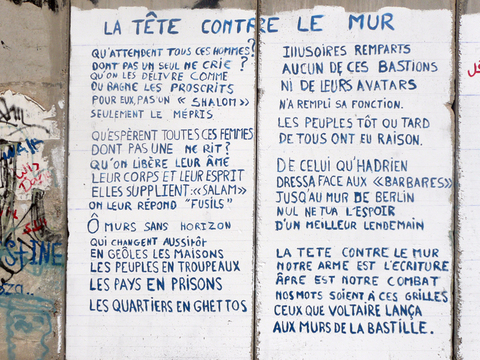 LA TÊTE CONTRE LE MUR
QU'ATTENDENT TOUS CES HOMMES?
DONT PAS UN SEUL NE CRIE ?
QU'ON LES DÉLIVRE COMME
DU BAGNE LES PROSCRITS
POUR EUX, PAS UN « SHALOM »
SEULEMENT LE MÉPRIS
QU'ESPÈRENT TOUTES CES FEMMES
DONT PAS UNE NE RIT?
QU'ON LIBÈRE LEUR ÂME
LEUR CORPS ET LEUR ESPRIT
ELLES SUPPLIENT: «SALAM»
ON LEUR RÉPOND "FUSILS"
Ô MURS SANS HORIZON
QUI CHANGENT AUSSITÔT
EN GEÔLES LES MAISONS
LES PEUPLES EN TROUPEAUX
LES PAYS EN PRISONS
LES QUARTIERS EN GHETTOS
ILLUSOIRES REMPARTS
AUCUN DE CES BASTIONS
NI DE LEURS AVATARS
N'A REMPLI SA FONCTION.
LES PEUPLES TÔT OU TARD
DE TOUS ONT EU RAISON.
DE CELUI QU'HADRIEN
DRESSA FACE AUX «BARBARES»
JUSQU'AU MUR DE BERLIN
NUL NE TUA L'ESPOIR
D'UN MEILLEUR LENDEMAIN
LA TETE CONTRE LE MUR
NOTRE ARME EST L'ÉCRITURE
ÂPRE EST NOTRE COMBAT
NOS MOTS SOIENT À CES GRILLES
CEUX QUE VOLTAIRE LANÇA
AUX MURS DE LA BASTILLE.